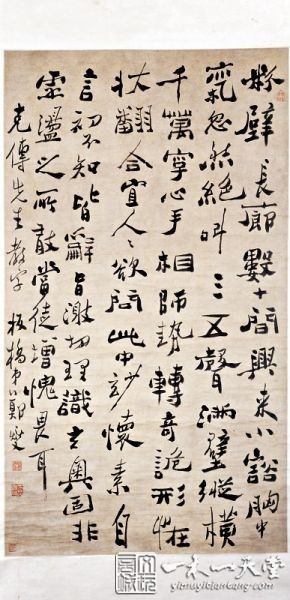 粉壁長廊數十間興來小豁胸中
氣忽然絕叫三五聲滿壁縱橫
千萬字心手相師勢轉奇詭形怪
狀翻合宜人々欲問此中妙懷素自
言初不知皆辭旨激切理識玄奧固非
虛盪之所敢當徒增愧畏耳
克傳先生教字 板橋弟鄭燮
一木一天堂
yimuyitiantang.com